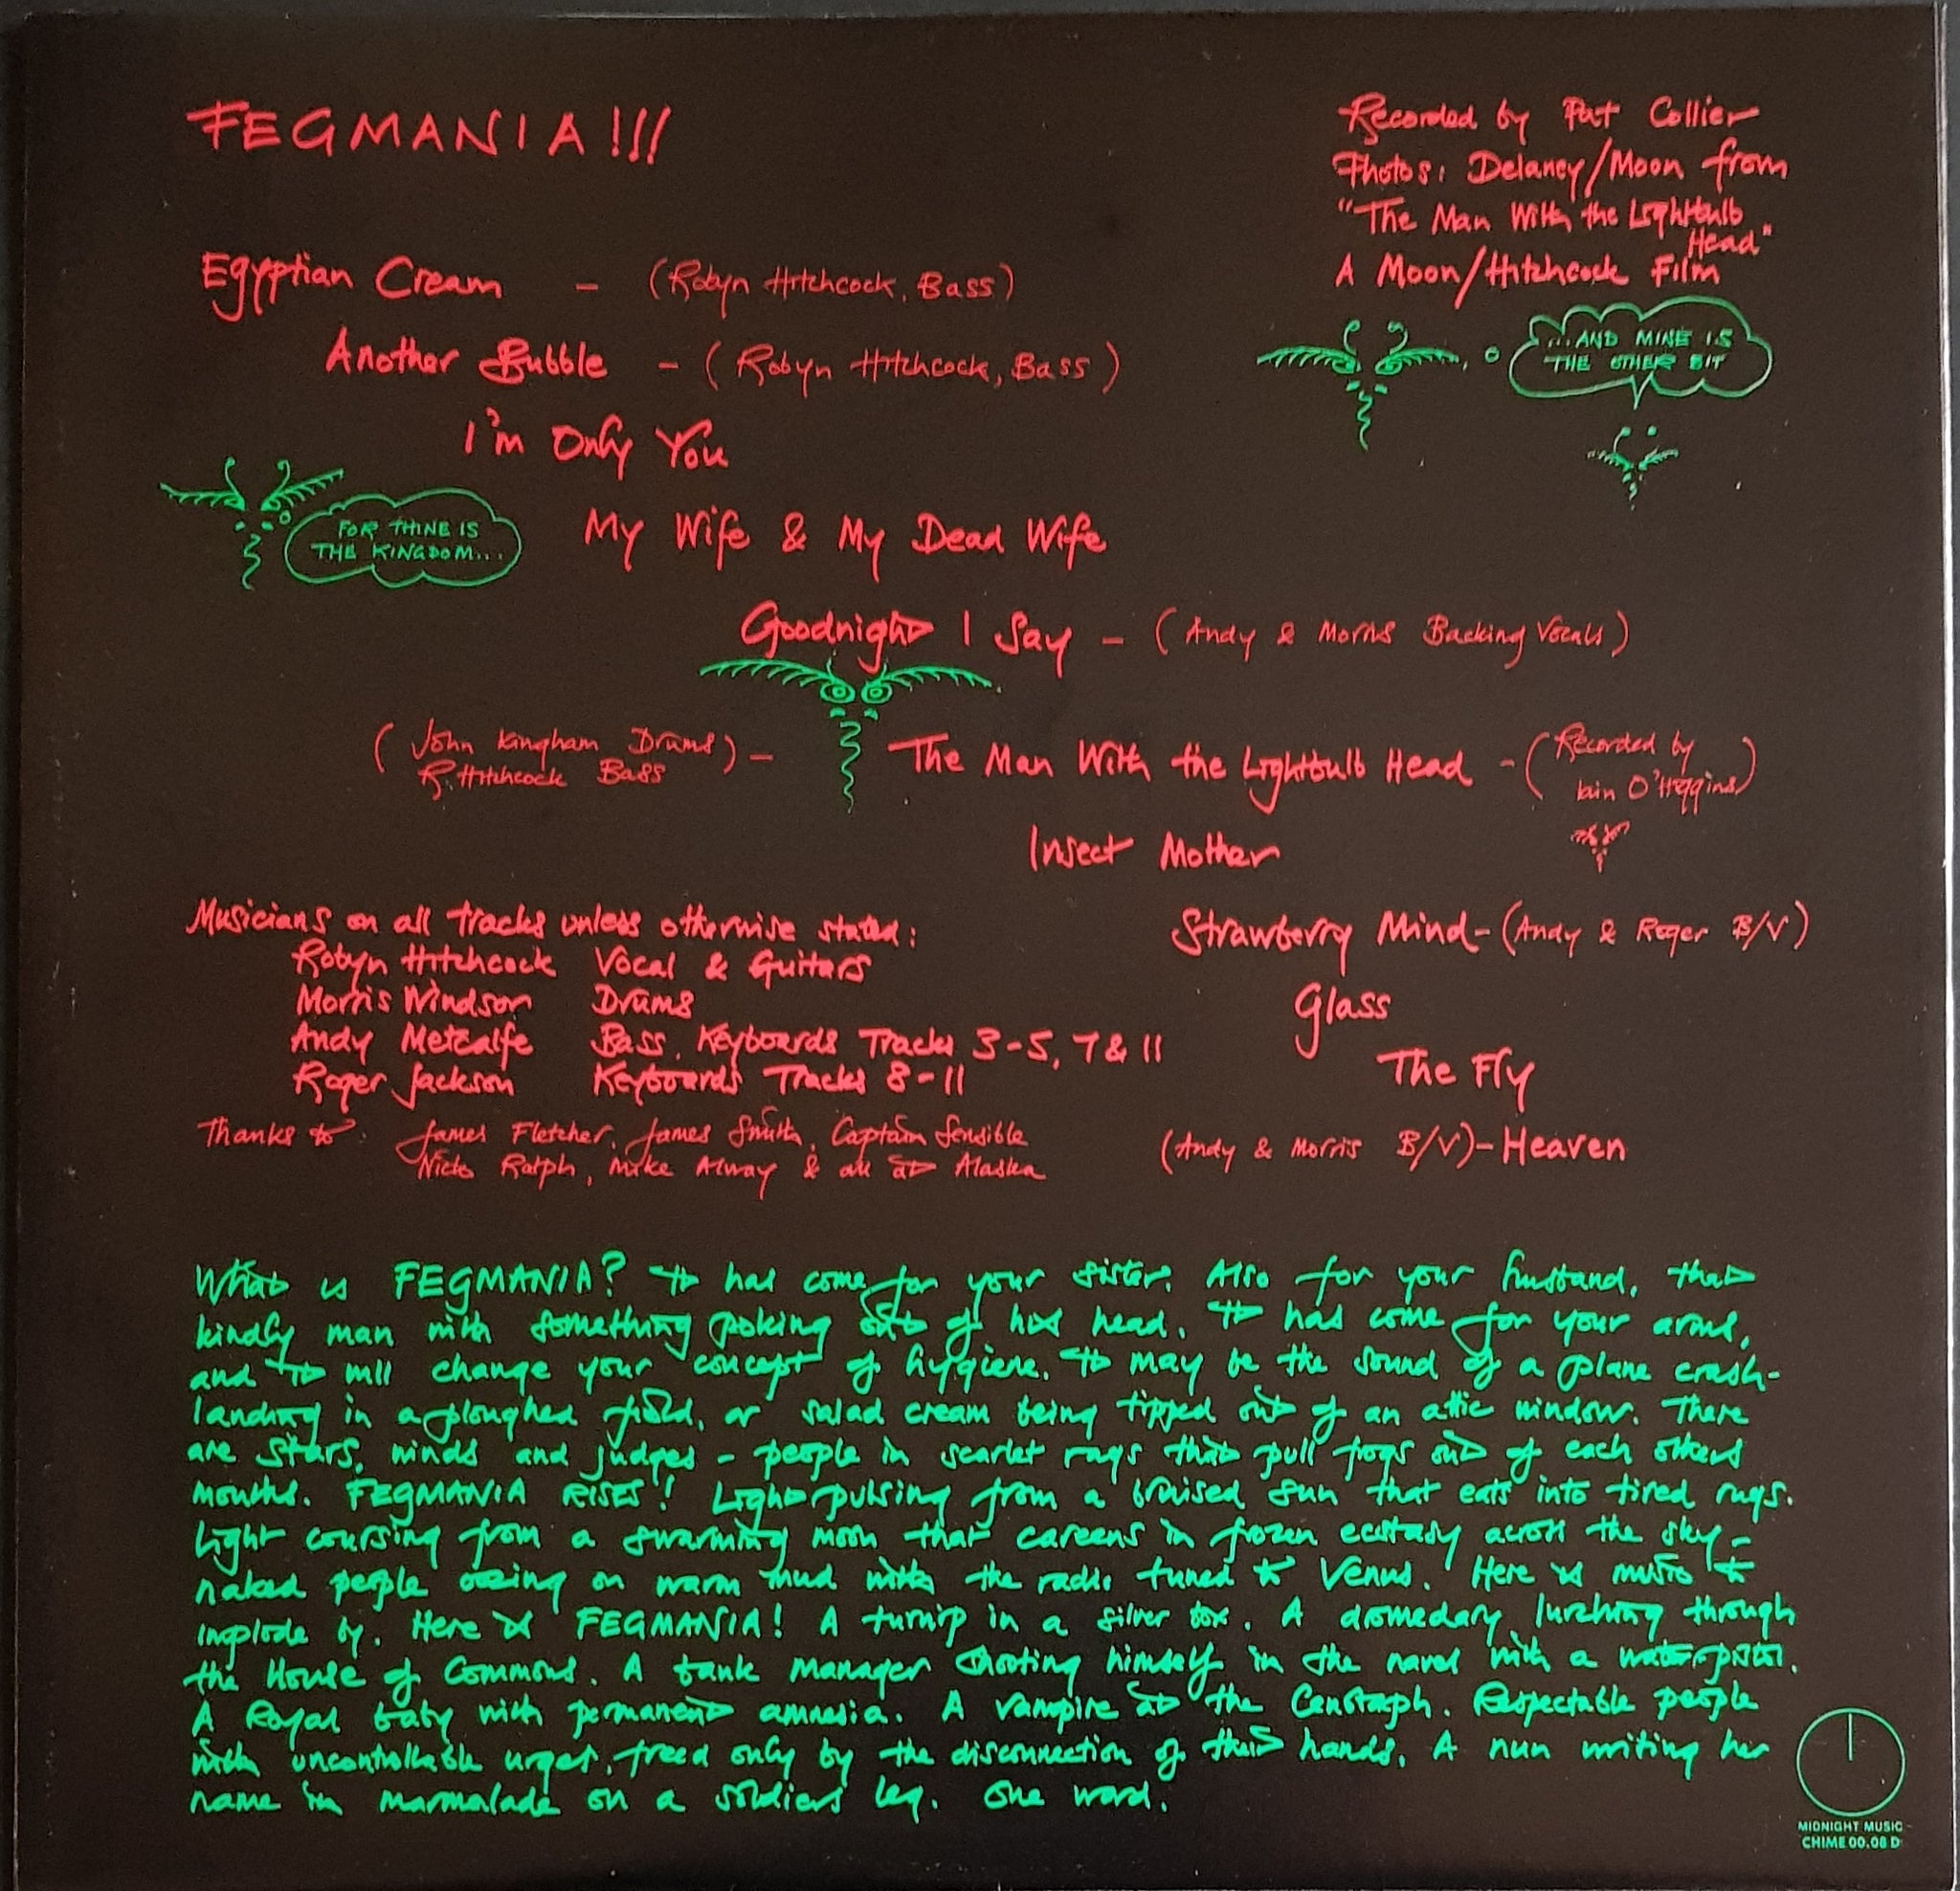 FEGMANIA!!!
Recorded by Pat Collier
Photos: Delaney/Moon from
"The Man With the Lightbulb
Head"
A Moon/Hitchcock Film
Egyptian Cream – (Robyn Hitchcock, Bass)
Another Bubble – (Robyn Hitchcock, Bass)
...AND MINE IS
THE OTHER BIT
I'm Only You
FOR THINE IS
THE KINGDOM...
My Wife & My Dead Wife
Goodnight I Say – (Andy & Morris Backing Vocals)
(John Kingham Drums
R. Hitchcock Bass) – The Man With the Lightbulb Head – (Recorded by
Iain O'Higgins)
Insect Mother
Strawberry Mind – (Andy & Roger B/V)
Glass
The Fly
(Andy & Morris B/V) – Heaven
Musicians on all tracks unless otherwise stated:
Robyn Hitchcock Vocal & Guitars
Morris Windsor Drums
Andy Metcalfe Bass, Keyboards Tracks 3-5, 7 & 11
Roger Jackson Keyboards Tracks 8-11
Thanks to: James Fletcher, James Smith, Captain Sensible
Nick Ralph, Mike Alway & all at Alaska
What is FEGMANIA? It has come for your sister. Also for your husband, that
kindly man with something poking out of his head. It has come for your arms,
and it will change your concept of hygiene. It may be the sound of a plane crash-
landing in a ploughed field, or salad cream being tipped out of an attic window. There
are stars, minds and judges – people in scarlet rugs that pull frogs out of each others
mouths. FEGMANIA RISES! Light pulsing from a bruised sun that eats into tired rugs.
Light coursing from a swarming moon that careens in frozen ecstasy across the sky –
naked people oozing on warm mud with the radio tuned to Venus. Here is music to
implode by. Here is FEGMANIA! A turnip in a silver box. A dromedary lurching through
the House of Commons. A bank manager shooting himself in the navel with a water-pistol.
A Royal baby with permanent amnesia. A vampire at the Cenotaph. Respectable people
with uncontrollable urges, freed only by the disconnection of their hands. A nun writing her
name in marmalade on a soldiers leg. One word.
MIDNIGHT MUSIC
CHIME 00.08 D